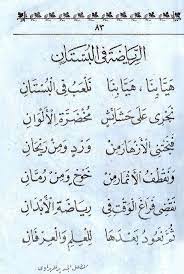 ٨٣
الرِّيَاضَةُ فِي البُسْتَان
هَيَّا بِنَا ، هَيَّا بِنَا نَلْعَبُ فِي البُسْتَانِ
نَجْرِي عَلَى حَشَائِشٍ مُخْضَرَّةِ الأَلْوَانِ
فَنَجْتَنِي الأَزْهَارَ مِنْ وَرْدٍ وَمِنْ رَيْحَانِ
وَنَقْطِفُ الأَثْمَارَ مِنْ خَوْخٍ وَمِنْ رُمَّانِ
نَقْضِي فَرَاغَ الوَقْتِ فِي رِيَاضَةِ الأَبْدَانِ
ثُمَّ نَعُودُ بَعْدَهَا لِلْعِلْمِ وَالعِرْفَانِ